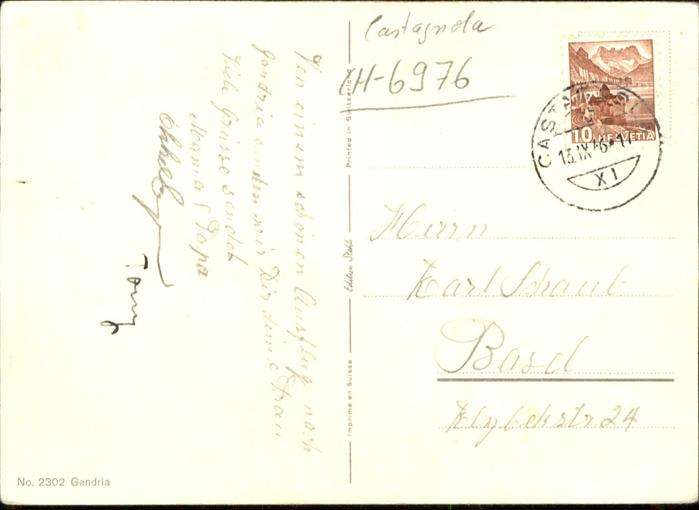 Castagnola
CH-6976
10 HELVETIA
CASTAGNOLA
13.IX 46-17
XI
Von einem schönen Ausflug nach
Gandria senden wir Dir deine Frau
Viele Grüsse sendet
Mama & Papa
Tony
Printed in Switzerland
Edition Stehli
Imprimé en Suisse
Herrn
Karl Schaub
Basel
Klybeckstr 24
No. 2302 Gandria